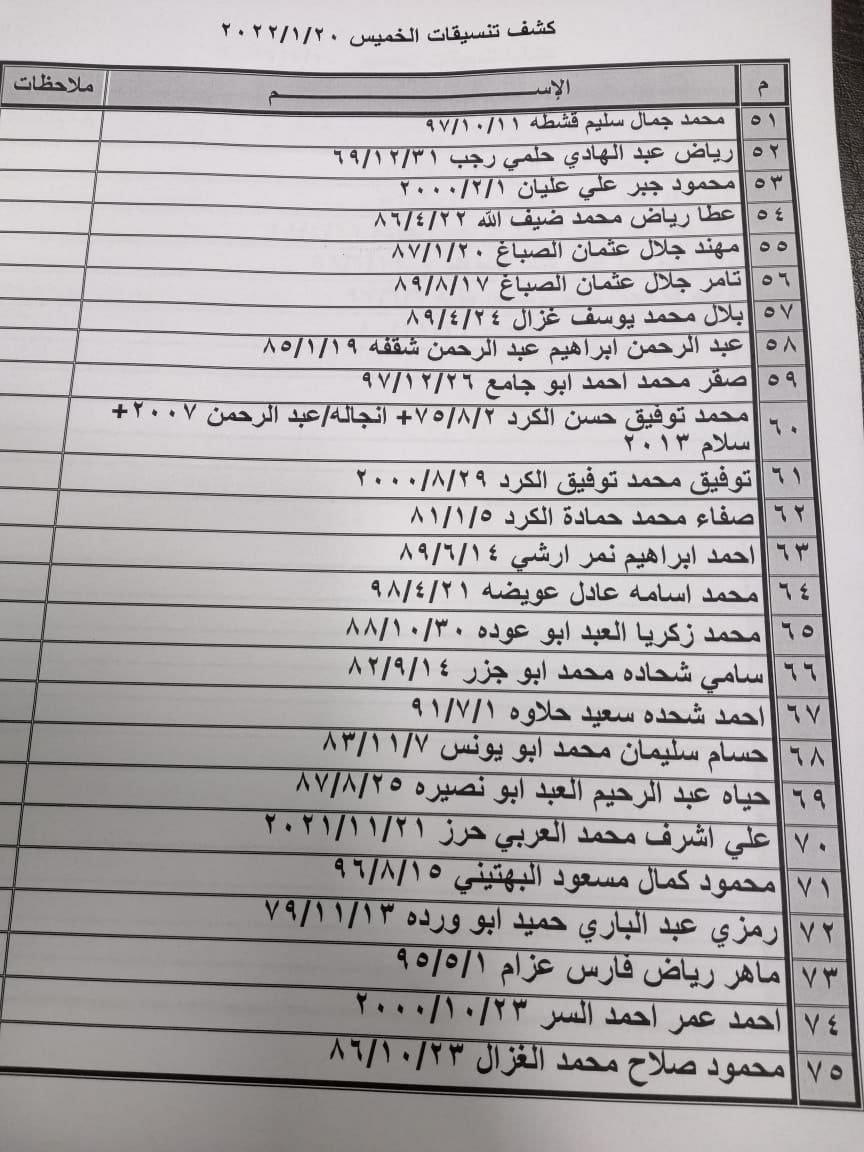 كشف تنسيقات الخميس ٢٠٢٢/١/٢٠
م الإســـــــــم ملاحظات
٥١ محمد جمال سليم قشطه ٩٧/١٠/١١
٥٢ رياض عبد الهادي حلمي رجب ٦٩/١٢/٣١
٥٣ محمود جبر علي عليان ٢٠٠٠/٢/١
٥٤ عطا رياض محمد ضيف الله ٨٦/٤/٢٢
٥٥ مهند جلال عثمان الصباغ ٨٧/١/٢٠
٥٦ تامر جلال عثمان الصباغ ٨٩/٨/١٧
٥٧ بلال محمد يوسف غزال ٨٩/٤/٢٤
٥٨ عبد الرحمن ابراهيم عبد الرحمن شقفه ٨٥/١/١٩
٥٩ صقر محمد احمد ابو جامع ٩٧/١٢/٢٦
٦٠ محمد توفيق حسن الكرد ٧٥/٨/٢+ انجاله/عبد الرحمن ٢٠٠٧+
سلام ٢٠١٣
٦١ توفيق محمد توفيق الكرد ٢٠٠٠/٨/٢٩
٦٢ صفاء محمد حمادة الكرد ٨١/١/٥
٦٣ احمد ابراهيم نمر ارشي ٨٩/٦/١٤
٦٤ محمد اسامه عادل عويضه ٩٨/٤/٢١
٦٥ محمد زكريا العبد ابو عوده ٨٨/١٠/٣٠
٦٦ سامي شحاده محمد ابو جزر ٨٢/٩/١٤
٦٧ احمد شحده سعيد حلاوه ٩١/٧/١
٦٨ حسام سليمان محمد ابو يونس ٨٣/١١/٧
٦٩ حياه عبد الرحيم العبد ابو نصيره ٨٧/٨/٢٥
٧٠ علي اشرف محمد العربي حرز ٢٠٢١/١١/٢١
٧١ محمود كمال مسعود البهتيني ٩٦/٨/١٥
٧٢ رمزي عبد الباري حميد ابو ورده ٧٩/١١/١٣
٧٣ ماهر رياض فارس عزام ٩٥/٥/١
٧٤ احمد عمر احمد السر ٢٠٠٠/١٠/٢٣
٧٥ محمود صلاح محمد الغزال ٨٦/١٠/٢٣